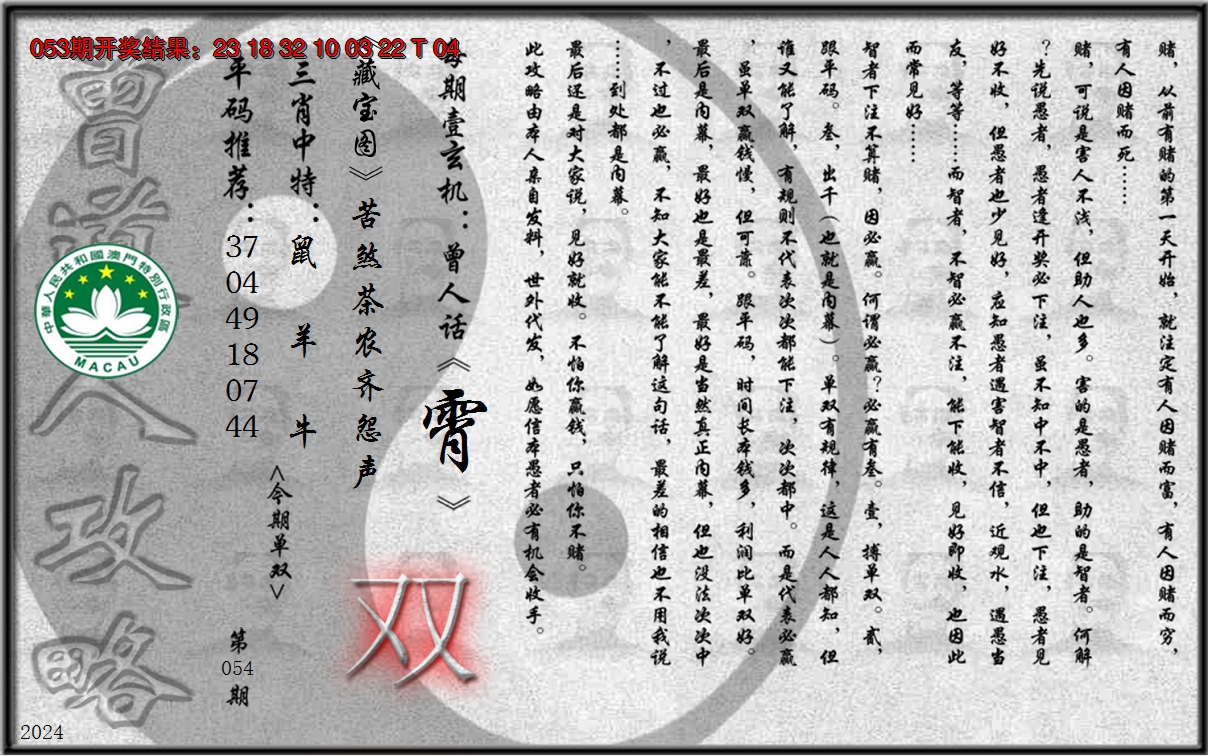 053期开奖结果：23 18 32 10 03 22 T 04
赌，从前有赌的第一天开始，就注定有人因赌而富，有人因赌而穷，
有人因赌而死……
赌，可说是害人不浅，但助人也多。害的是愚者，助的是智者。何解
？先说愚者，愚者逢开奖必下注，虽不知中不中，但也下注，愚者见
好不收，但愚者也少见好，应知愚者遇害智者不信，近观水，遇愚当
友，等等……而智者，不智必赢不注，能下能收，见好即收，也因此
而常见好……
智者下注不算赌，因必赢。何谓必赢？必赢有叁。壹，搏单双。贰，
跟平码。叁，出千（也就是内幕）。单双有规律，这是人人都知，但
谁又能了解，有规则不代表次次都能下注，次次都中。而是代表必赢
，虽单双赢钱慢，但可靠。跟平码，时间长本钱多，利润比单双好。
最后是内幕，最好也是最差，最好是当然真正内幕，但也没法次次中
，不过也必赢，不知大家能不能了解这句话，最差的相信也不用我说
……到处都是内幕。
最后还是对大家说，见好就收。不怕你赢钱，只怕你不赌。
此攻略由本人亲自发料，世外代发，如愿信本愚者必有机会收手。
每期壹玄机：曾人话《霄》
《藏宝图》苦煞茶农齐怨声
双
三肖中特：鼠 羊 牛
<今期单双>
平码推荐：37 04 49 18 07 44
第054期
曾道人攻略
中華人民共和國澳門特別行政區
MACAU
2024